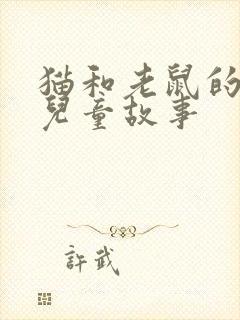 猫和老鼠的
兒童故事
許武